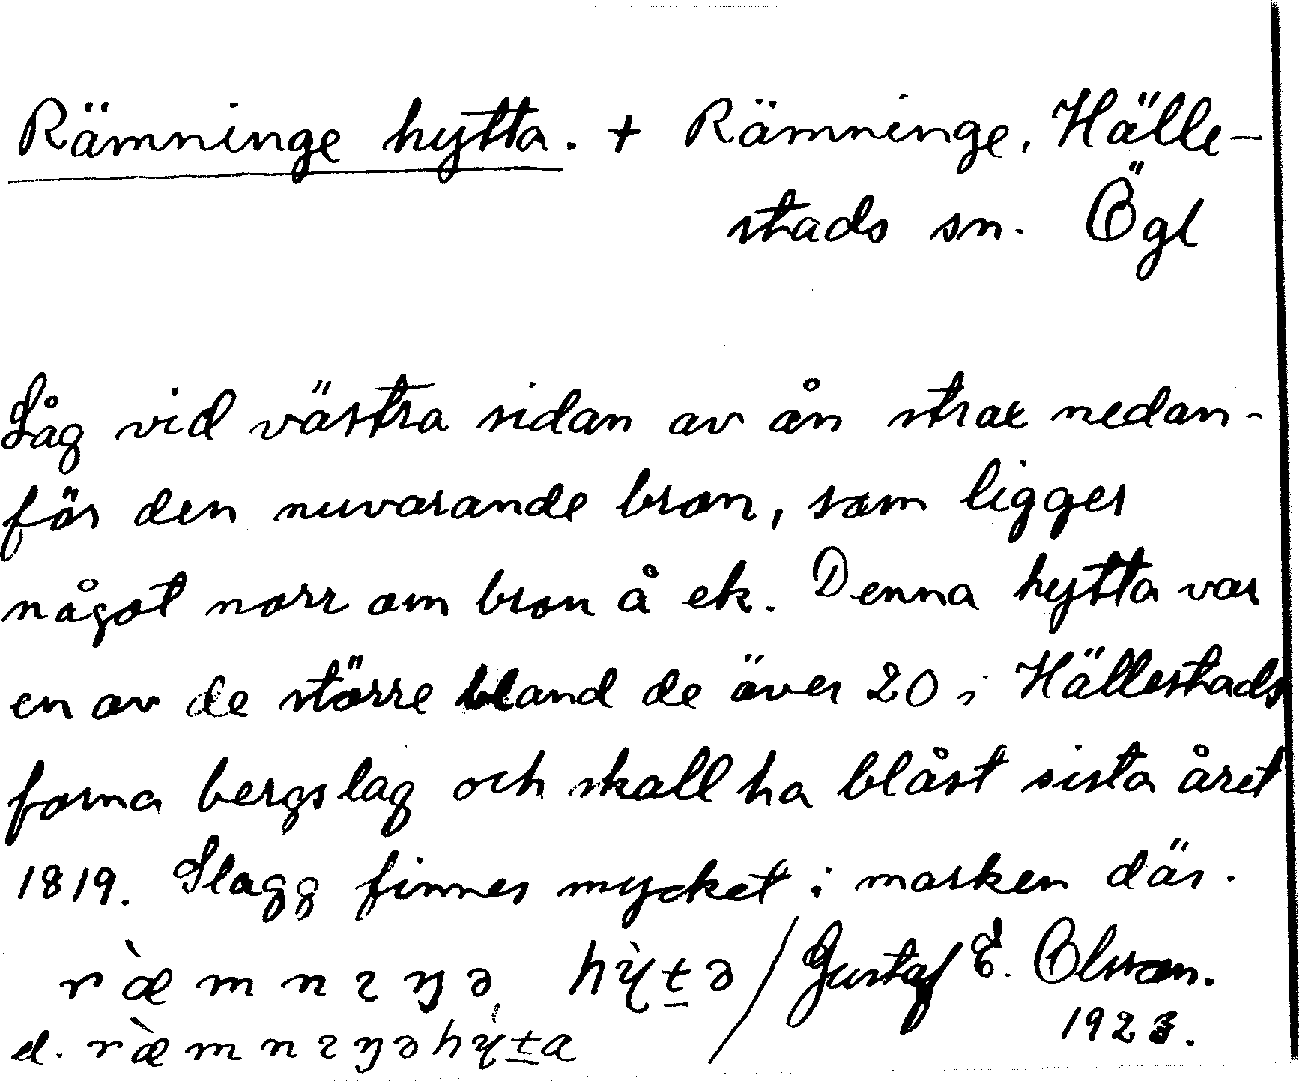 Rämninge hytta. + Rämninge, Hälle-
stads sn. Ögl
Låg vid västra sidan av ån strax nedan-
för den nuvarande bron, som ligger
något norr om bron å ek. Denna hytta var
en av de större bland de över 20 i Hällestads
forna bergslag och skall ha blåst sista året
1819. Slagg finnes mycket i marken där.
ræ̀mnıŋə hỳtə / Gustaf E. Olsson.
el. ræ̀mnıŋəhỳta 1923.